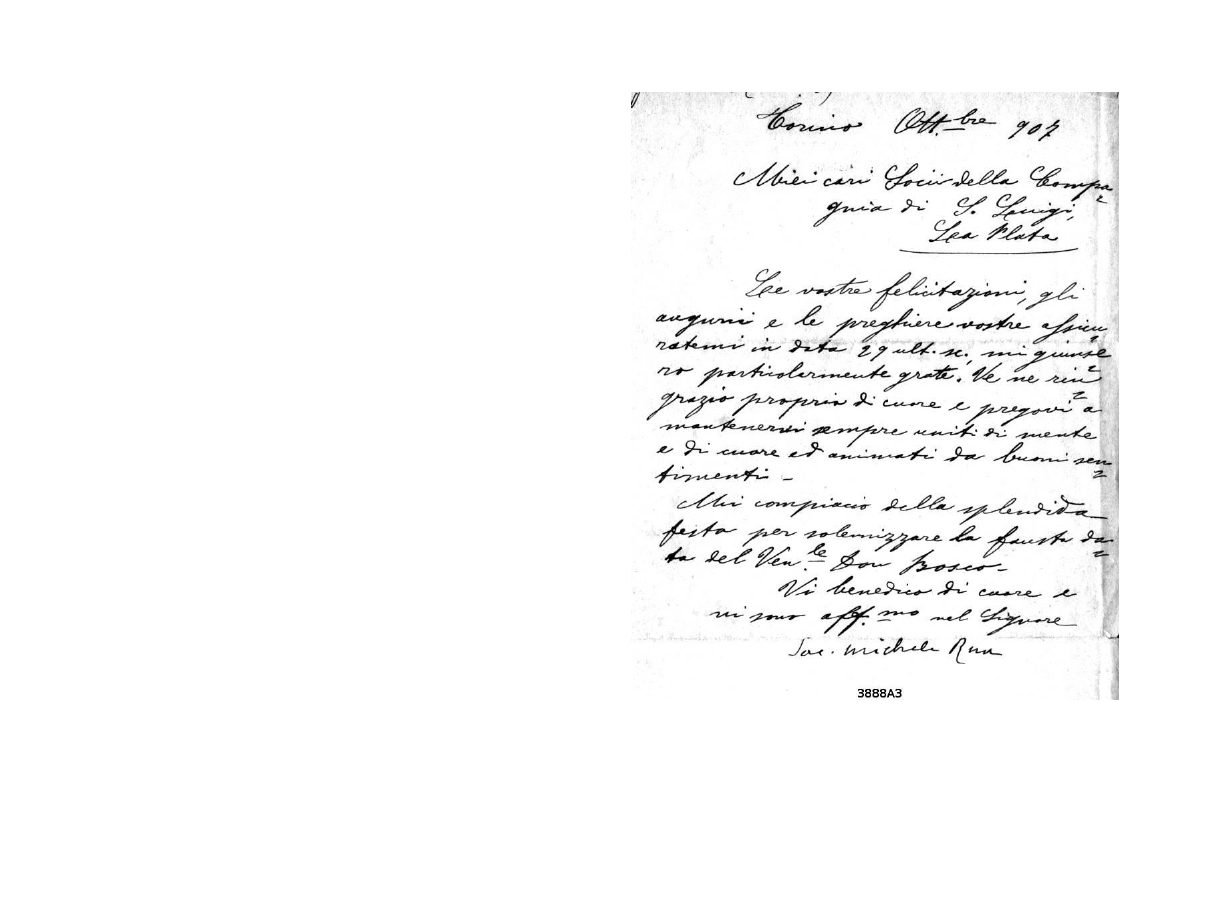 Torino Ott.bre 907
Miei cari Socii della Compa=
gnia di S. Luigi,
La Plata
Le vostre felicitazioni, gli
augurii e le preghiere vostre assicu=
ratemi in data 29 ult. sc., mi giunse=
ro particolarmente grate. Ve ne rin=
grazio proprio di cuore e pregovi a
mantenervi sempre uniti di mente
e di cuore ed animati da buoni sen=
timenti -
Mi compiacio della splendida
festa per solemizzare la fausta da=
ta del Ven.le Don Bosco -
Vi benedico di cuore e
vi sono aff.mo nel Signore
Sac. Michele Rua
3888A3